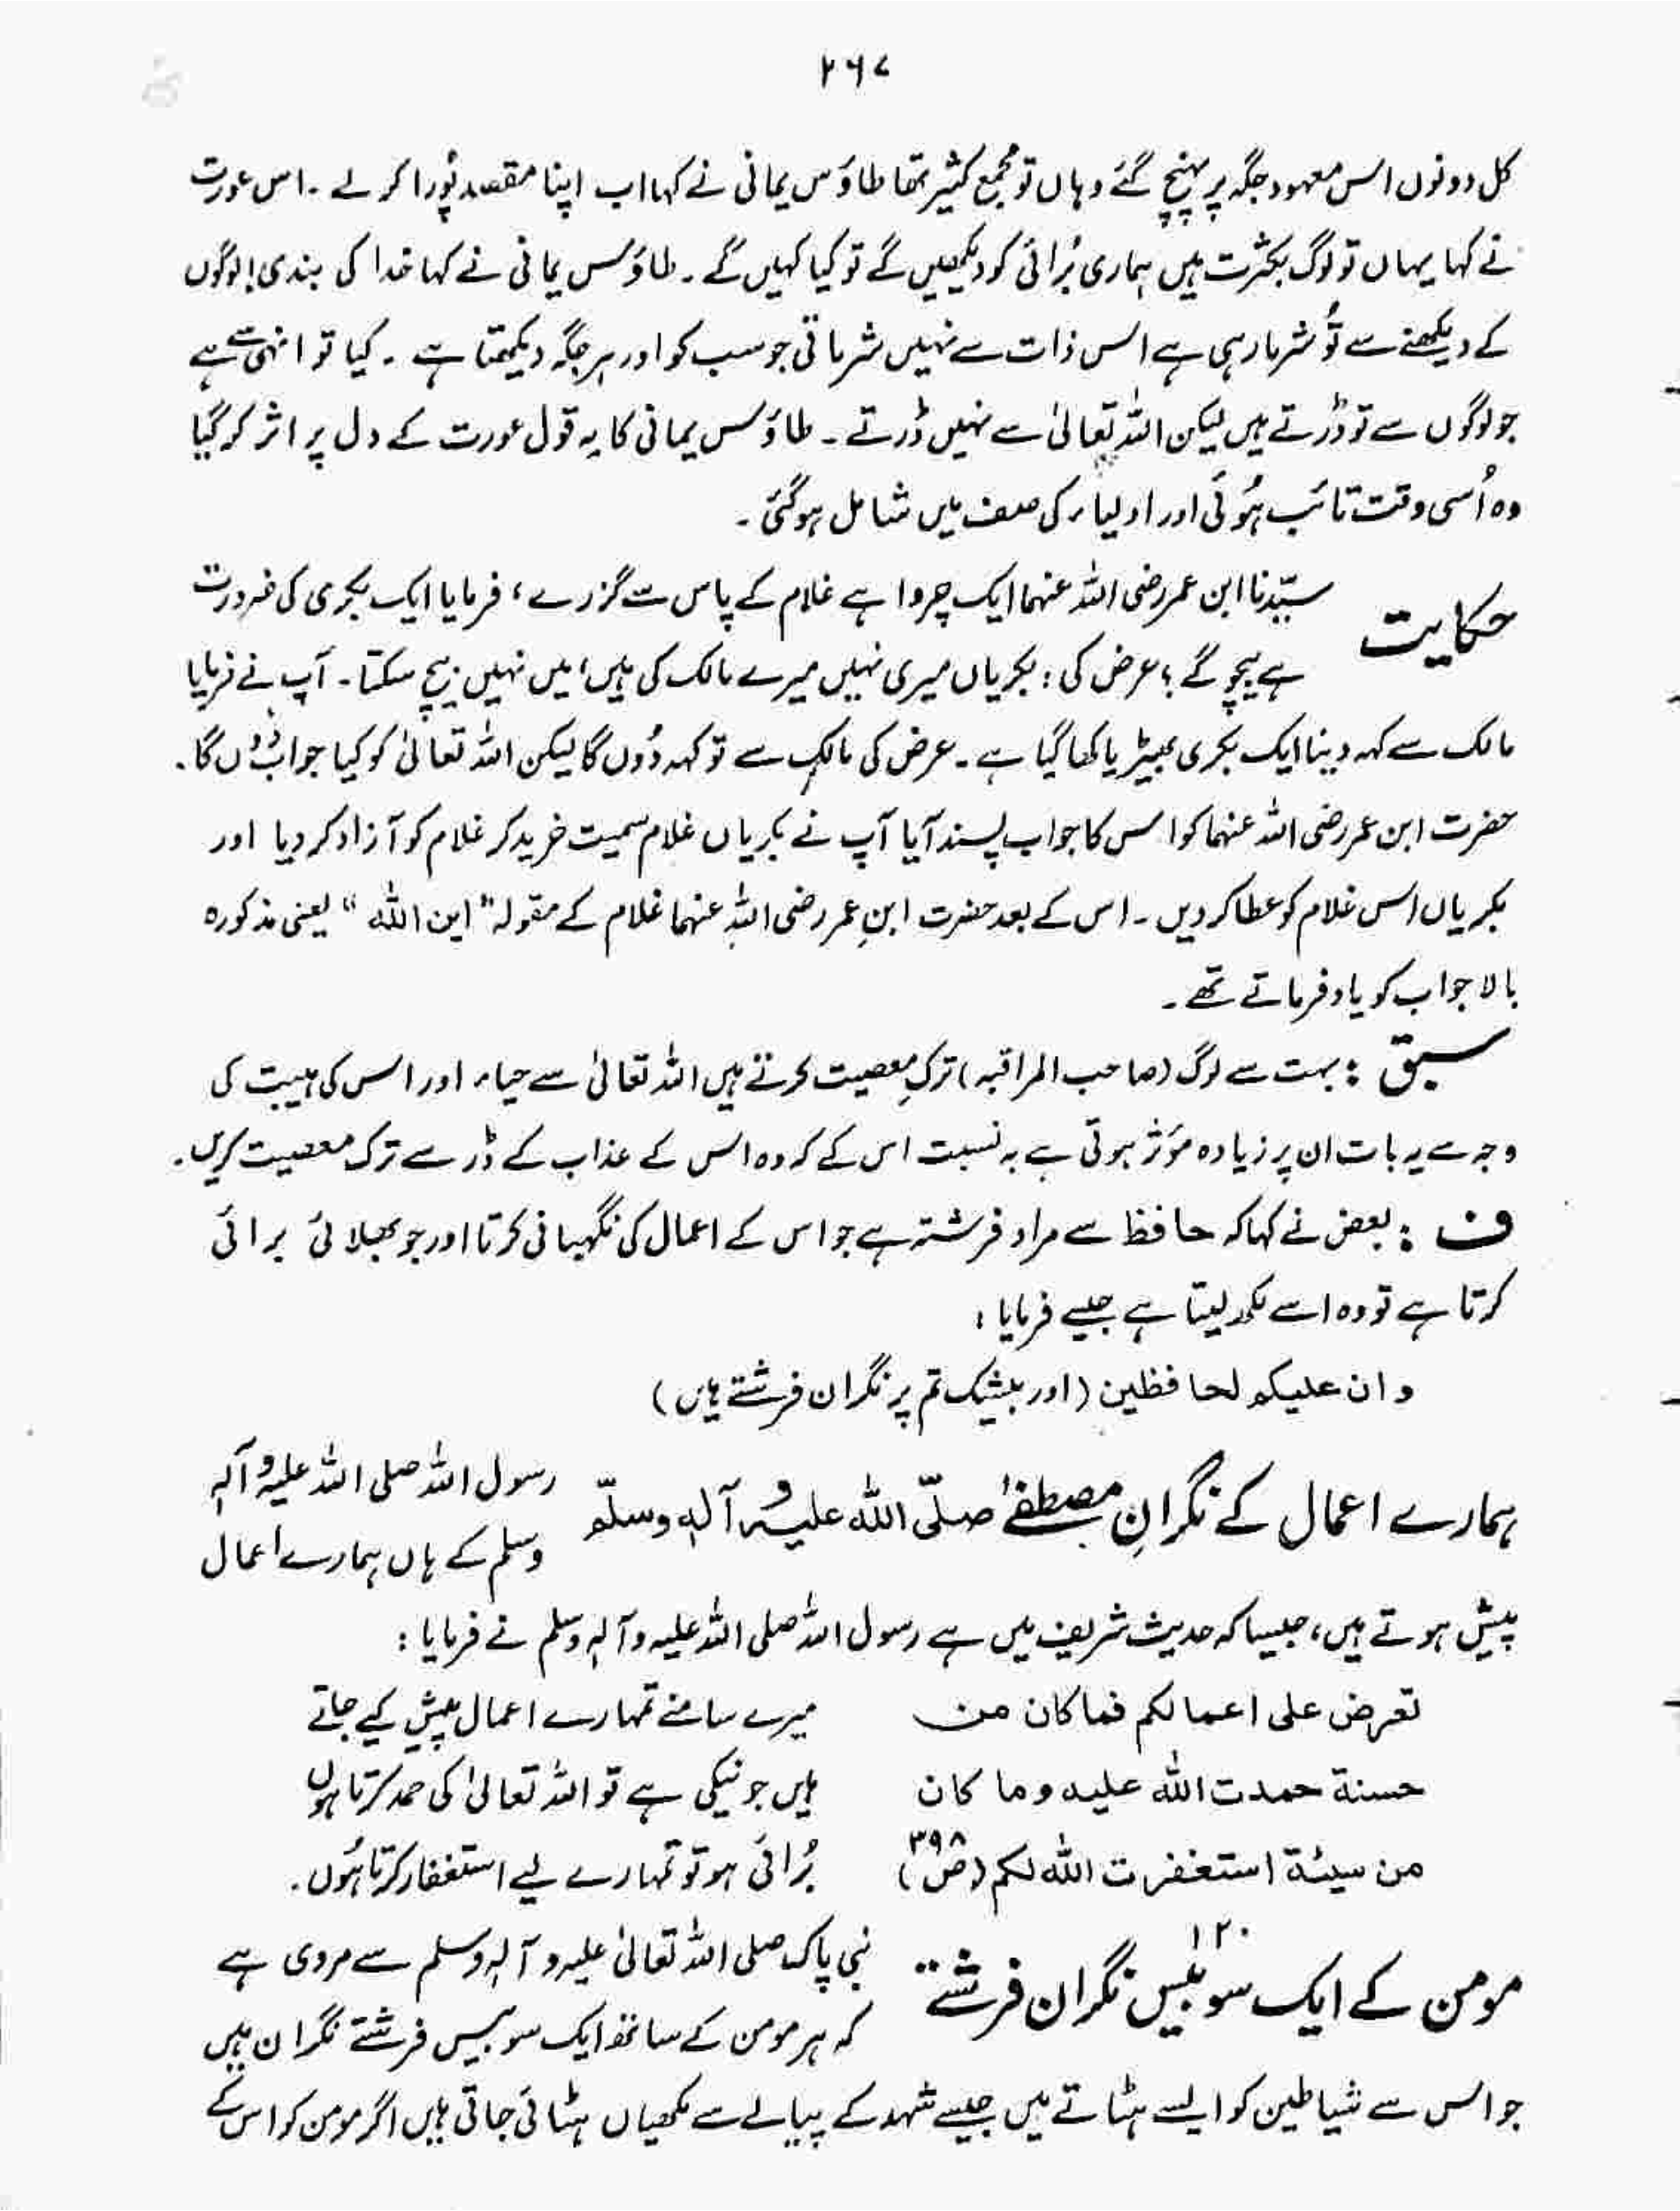 ۲۶۷
کل دونوں اس معہود جگہ پر پہنچ گئے وہاں تو مجمع کثیر تھا طاؤس یمانی نے کہا اب اپنا مقصد پُورا کر لے ۔ اس عورت
نے کہا یہاں تو لوگ بکثرت ہیں ہماری بُرائی کو دیکھیں گے تو کیا کہیں گے ۔ طاؤس یمانی نے کہا خدا کی بندی ! لوگوں
کے دیکھنے سے تُو شرما رہی ہے اس ذات سے نہیں شرماتی جو سب کو اور ہر جگہ دیکھتا ہے ۔ کیا تو انہی سے ہے
جو لوگوں سے تو ڈرتے ہیں لیکن اللہ تعالیٰ سے نہیں ڈرتے ۔ طاؤس یمانی کا یہ قول عورت کے دل پر اثر کر گیا
وہ اُسی وقت تائب ہُوئی اور اولیاء کی صف میں شامل ہو گئی ۔
حکایت سیّدنا ابن عمر رضی اللہ عنہما ایک چرواہے غلام کے پاس سے گزرے ، فرمایا ایک بکری کی ضرورت
ہے بیچو گے ؟ عرض کی : بکریاں میری نہیں میرے مالک کی ہیں ، میں نہیں بیچ سکتا ۔ آپ نے فرمایا
مالک سے کہہ دینا ایک بکری بھیڑیا کھا گیا ہے ۔ عرض کی مالک سے تو کہہ دُوں گا لیکن اللہ تعالیٰ کو کیا جواب دُوں گا ۔
حضرت ابن عمر رضی اللہ عنہما کو اس کا جواب پسند آیا آپ نے بکریاں غلام سمیت خرید کر غلام کو آزاد کر دیا اور
بکریاں اس غلام کو عطا کر دیں ۔ اس کے بعد حضرت ابنِ عمر رضی اللہ عنہما غلام کے مقولہ " این اللہ " یعنی مذکورہ
بالا جواب کو یاد فرماتے تھے ۔
سبق : بہت سے لوگ (صاحب المراقبہ) ترکِ معصیت کرتے ہیں اللہ تعالیٰ سے حیاء اور اس کی ہیبت کی
وجہ سے یہ بات ان پر زیادہ مؤثر ہوتی ہے بہ نسبت اس کے کہ وہ اس کے عذاب کے ڈر سے ترک معصیت کریں ۔
ف : بعض نے کہا کہ حافظ سے مراد فرشتہ ہے جو اس کے اعمال کی نگہبانی کرتا اور جو بھلائی برائی
کرتا ہے تو وہ اسے لکھ لیتا ہے جیسے فرمایا :
و ان علیکم لحافظین (اور بیشک تم پر نگران فرشتے ہیں)
ہمارے اعمال کے نگرانِ مصطفےٰ صلّی اللہ علیہ وآلہٖ وسلّم رسول اللہ صلی اللہ علیہ وآلہٖ
وسلم کے ہاں ہمارے اعمال
پیش ہوتے ہیں ، جیسا کہ حدیث شریف میں ہے رسول اللہ صلی اللہ علیہ وآلہٖ وسلم نے فرمایا :
تعرض علی اعمالکم فما کان من
حسنة حمدت اللہ علیہ و ما کان
من سیئة استغفرت اللہ لکم (ص ۳۹۸)
میرے سامنے تمہارے اعمال پیش کیے جاتے
ہیں جو نیکی ہے تو اللہ تعالیٰ کی حمد کرتا ہوں
بُرائی ہو تو تمہارے لیے استغفار کرتا ہُوں ۔
۱۲۰
مومن کے ایک سو بیس نگران فرشتے نبی پاک صلی اللہ تعالیٰ علیہ و آلہٖ وسلم سے مروی ہے
کہ ہر مومن کے ساتھ ایک سو بیس فرشتے نگران ہیں
جو اس سے شیاطین کو ایسے ہٹاتے ہیں جیسے شہد کے پیالے سے مکھیاں ہٹائی جاتی ہیں اگر مومن کو اس کے